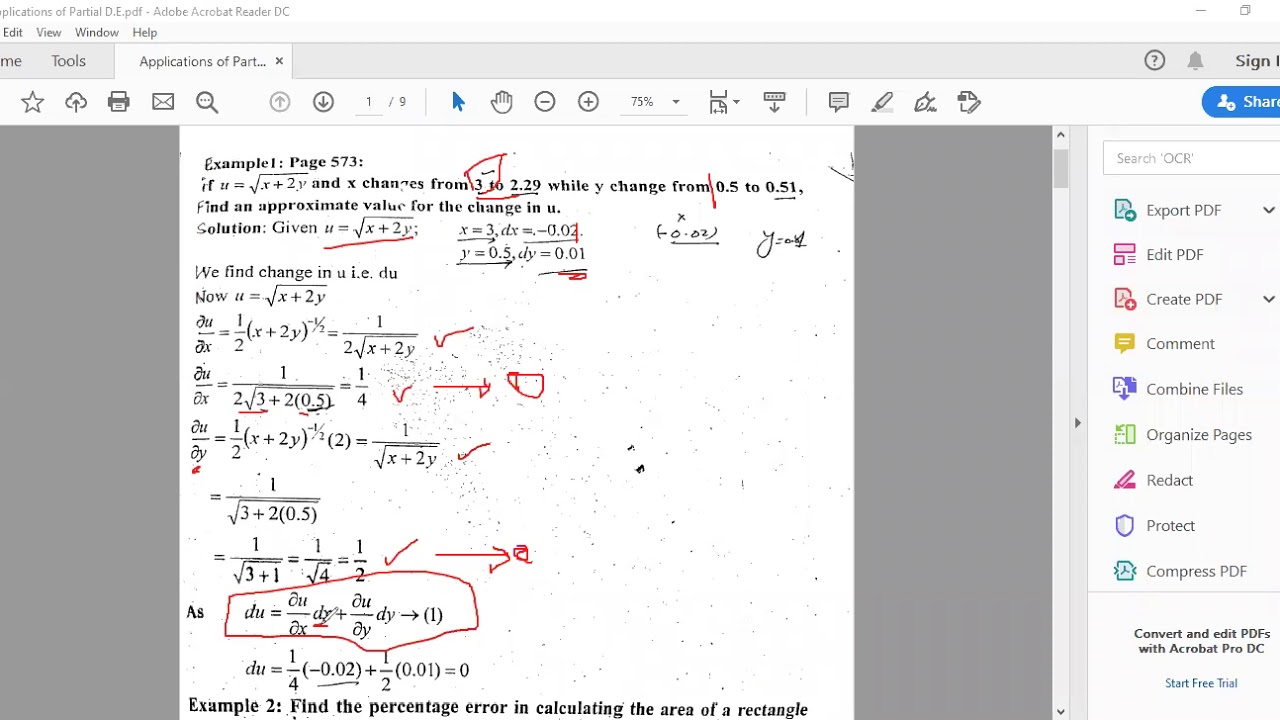 pplications of Partial D.E.pdf - Adobe Acrobat Reader DC
Edit View Window Help
me Tools Applications of Part... × Sign I
1 / 9 75% Share
Example1: Page 573:
if u = √(x + 2y) and x changes from 3 to 2.29 while y change from 0.5 to 0.51,
Find an approximate value for the change in u.
Solution: Given u = √(x + 2y); x = 3, dx = -0.02.
(-0.02) x
y = 0.5, dy = 0.01
We find change in u i.e. du
Now u = √(x + 2y)
∂u/∂x = 1/2 (x + 2y)^(-1/2) = 1/(2√(x + 2y))
∂u/∂x = 1/(2√(3 + 2(0.5))) = 1/4
∂u/∂y = 1/2 (x + 2y)^(-1/2) (2) = 1/√(x + 2y)
= 1/√(3 + 2(0.5))
= 1/√(3 + 1) = 1/√4 = 1/2
As du = ∂u/∂x dy + ∂u/∂y dy → (1)
du = 1/4 (-0.02) + 1/2 (0.01) = 0
Example 2: Find the percentage error in calculating the area of a rectangle
Search 'OCR'
Export PDF
Edit PDF
Create PDF
Comment
Combine Files
Organize Pages
Redact
Protect
Compress PDF
Convert and edit PDFs
with Acrobat Pro DC
Start Free Trial